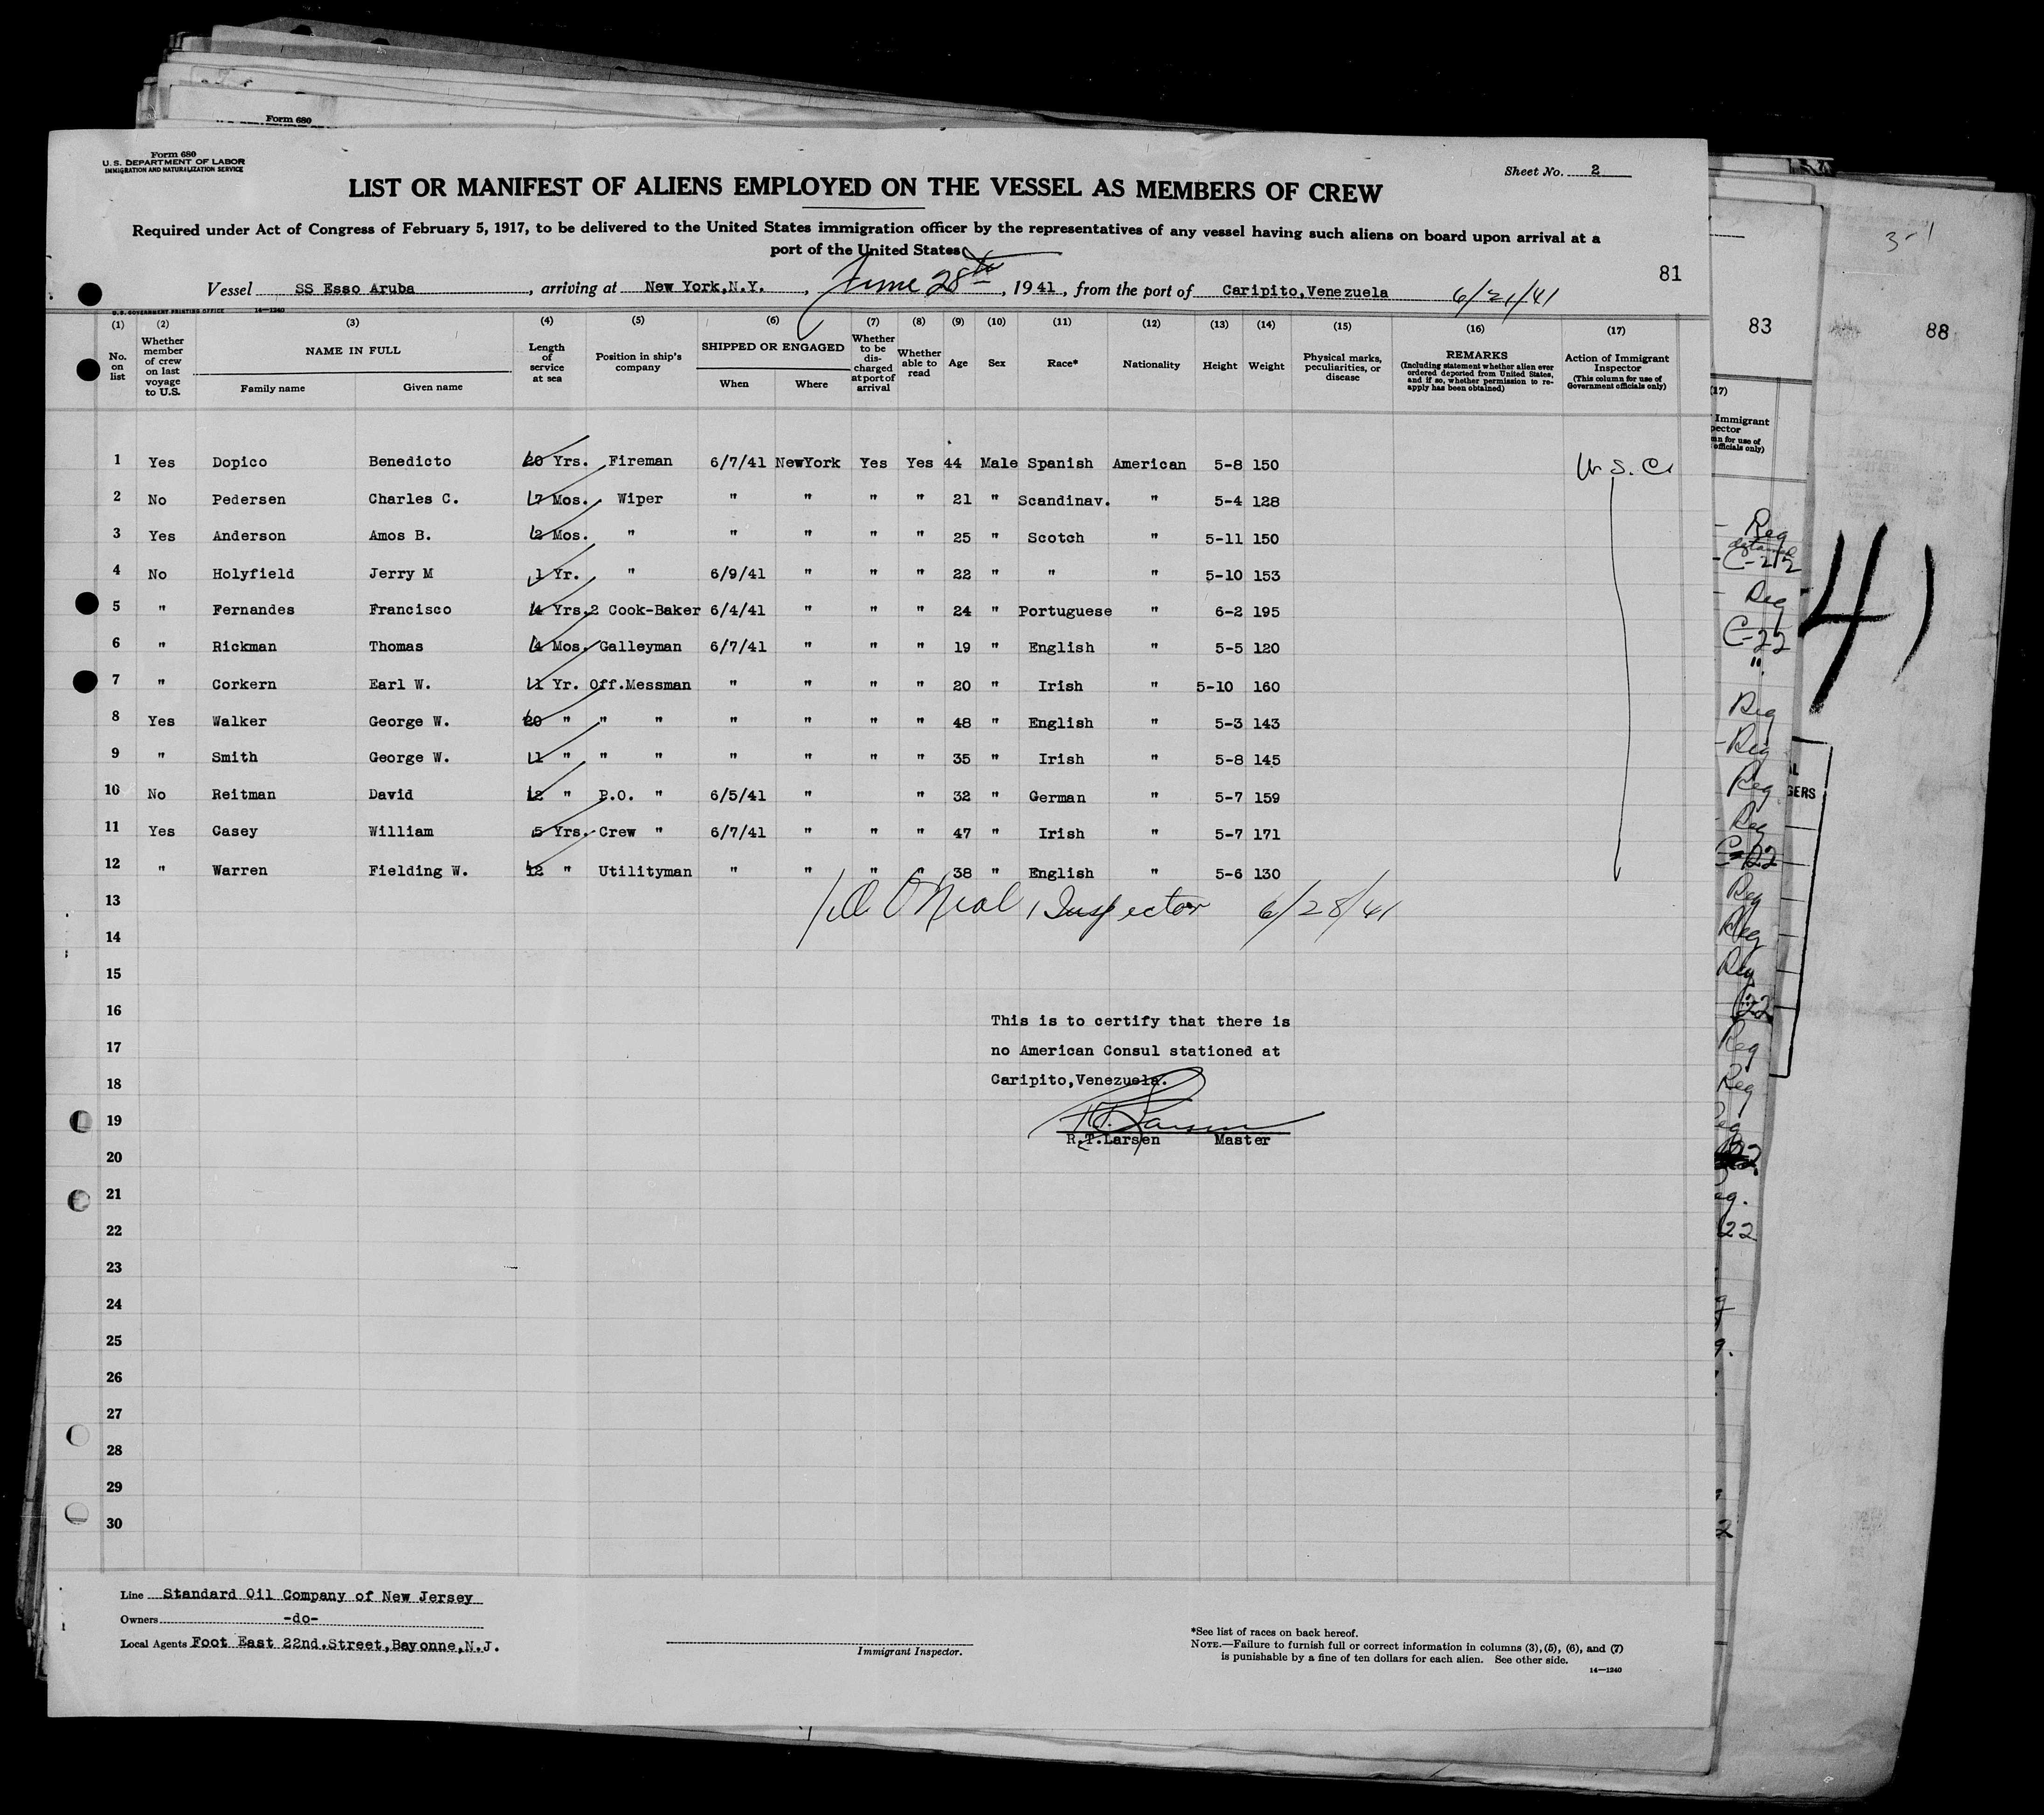 Form 680
Form 680
U. S. DEPARTMENT OF LABOR
IMMIGRATION AND NATURALIZATION SERVICE
Sheet No. 2
LIST OR MANIFEST OF ALIENS EMPLOYED ON THE VESSEL AS MEMBERS OF CREW
Required under Act of Congress of February 5, 1917, to be delivered to the United States immigration officer by the representatives of any vessel having such aliens on board upon arrival at a
port of the United States
81
Vessel SS Esso Aruba, arriving at New York,N.Y., June 28th, 1941, from the port of Caripito,Venezuela 6/21/41
U.S. GOVERNMENT PRINTING OFFICE 14—1240
(1) (2) (3) (4) (5) (6) (7) (8) (9) (10) (11) (12) (13) (14) (15) (16) (17)
No. on list
Whether member of crew on last voyage to U.S.
NAME IN FULL
Family name Given name
Length of service at sea
Position in ship's company
SHIPPED OR ENGAGED
When Where
Whether to be discharged at port of arrival
Whether able to read
Age
Sex
Race*
Nationality
Height
Weight
Physical marks, peculiarities, or disease
REMARKS
(Including statement whether alien ever ordered deported from United States, and if so, whether permission to reapply has been obtained)
Action of Immigrant Inspector
(This column for use of Government officials only)
1 Yes Dopico Benedicto 20 Yrs. Fireman 6/7/41 NewYork Yes Yes 44 Male Spanish American 5-8 150 U.S.C.
2 No Pedersen Charles C. 7 Mos. Wiper " " " " 21 " Scandinav. " 5-4 128
3 Yes Anderson Amos B. 2 Mos. " " " " " 25 " Scotch " 5-11 150
4 No Holyfield Jerry M 1 Yr. " 6/9/41 " " " 22 " " " 5-10 153
5 " Fernandes Francisco 4 Yrs. 2 Cook-Baker 6/4/41 " " " 24 " Portuguese " 6-2 195
6 " Rickman Thomas 4 Mos. Galleyman 6/7/41 " " " 19 " English " 5-5 120
7 " Corkern Earl W. 1 Yr. Off.Messman " " " " 20 " Irish " 5-10 160
8 Yes Walker George W. 20 " " " " " " " 48 " English " 5-3 143
9 " Smith George W. 1 " " " " " " " 35 " Irish " 5-8 145
10 No Reitman David 12 " P.O. " 6/5/41 " " 32 " German " 5-7 159
11 Yes Casey William 5 Yrs. Crew " 6/7/41 " " " 47 " Irish " 5-7 171
12 " Warren Fielding W. 12 " Utilityman " " " " 38 " English " 5-6 130
13
O'Neal, Inspector 6/28/41
14
15
16
This is to certify that there is
17
no American Consul stationed at
18
Caripito,Venezuela.
19
R.T. Larsen
R.T.Larsen Master
20
21
22
23
24
25
26
27
28
29
30
Line Standard Oil Company of New Jersey
Owners -do-
Local Agents Foot East 22nd.Street,Bayonne,N.J.
Immigrant Inspector.
*See list of races on back hereof.
NOTE.—Failure to furnish full or correct information in columns (3), (5), (6), and (7)
is punishable by a fine of ten dollars for each alien. See other side.
14—1240
83
(17)
Immigrant
officials only)
Reg
Reg
C-22
"
Reg
Reg
Reg
Reg
Reg
Reg
Reg
Reg
Reg
22
88
3-1
41
GERS